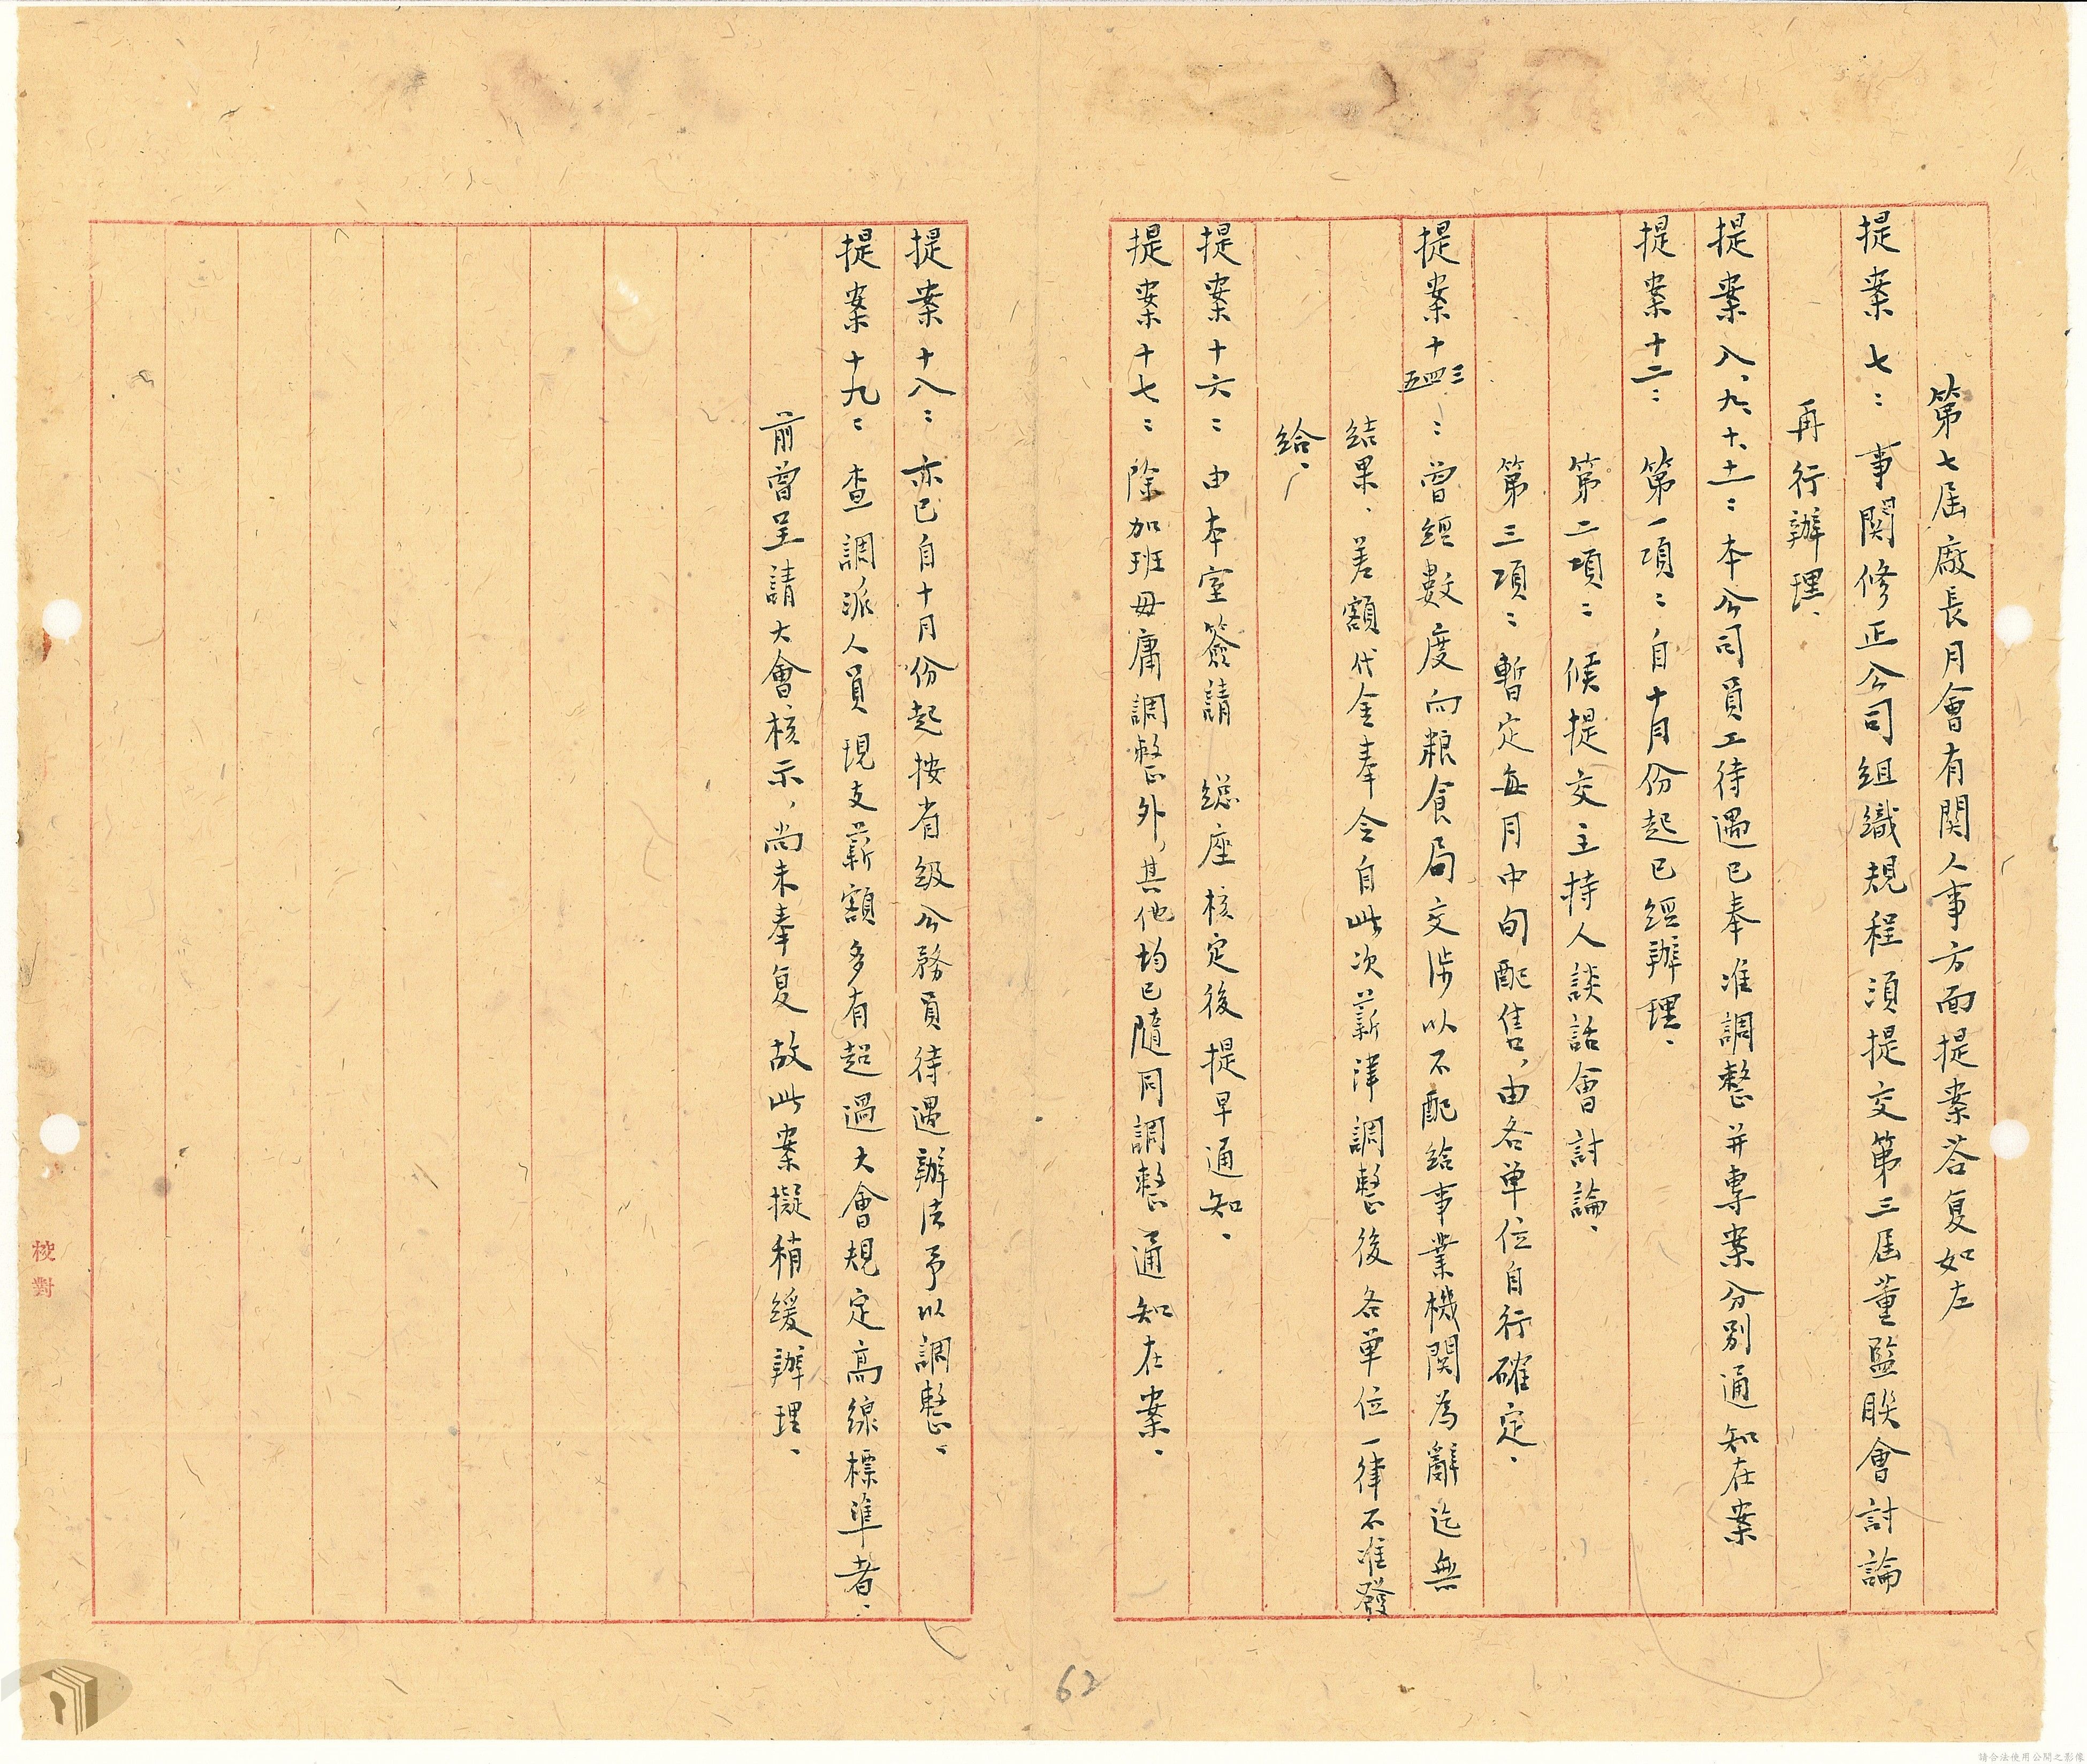 第七屆廠長月會有関人事方面提案荅复如左
提案七：事関修正公司組織規程須提交第三屆董監聯會討論
再行辦理、
提案八、九、十、十一：本公司員工待遇已奉准調整并專案分別通知在案
提案十二：第一項：自十月份起已經辦理、
第二項：候提交主持人談話會討論、
第三項：暫定每月中旬配售，由各单位自行確定、
提案十三四五：曾經數度向粮食局交涉以不配給事業機関為辭迄無
結果、差額代金奉令自此次薪津調整後各单位一律不准發
給、
提案十六：由本室簽請　總座核定後提早通知、
提案十七：除加班毋庸調整外，其他均已隨同調整通知在案、
提案十八：亦已自十月份起按省级公務員待遇辦法予以調整、
提案十九：查調派人員現支薪額多有超過大會規定高線標準者、
前曾呈請大會核示，尚未奉复故此案擬稍緩辦理、
校對
62
請合法使用公開之影像